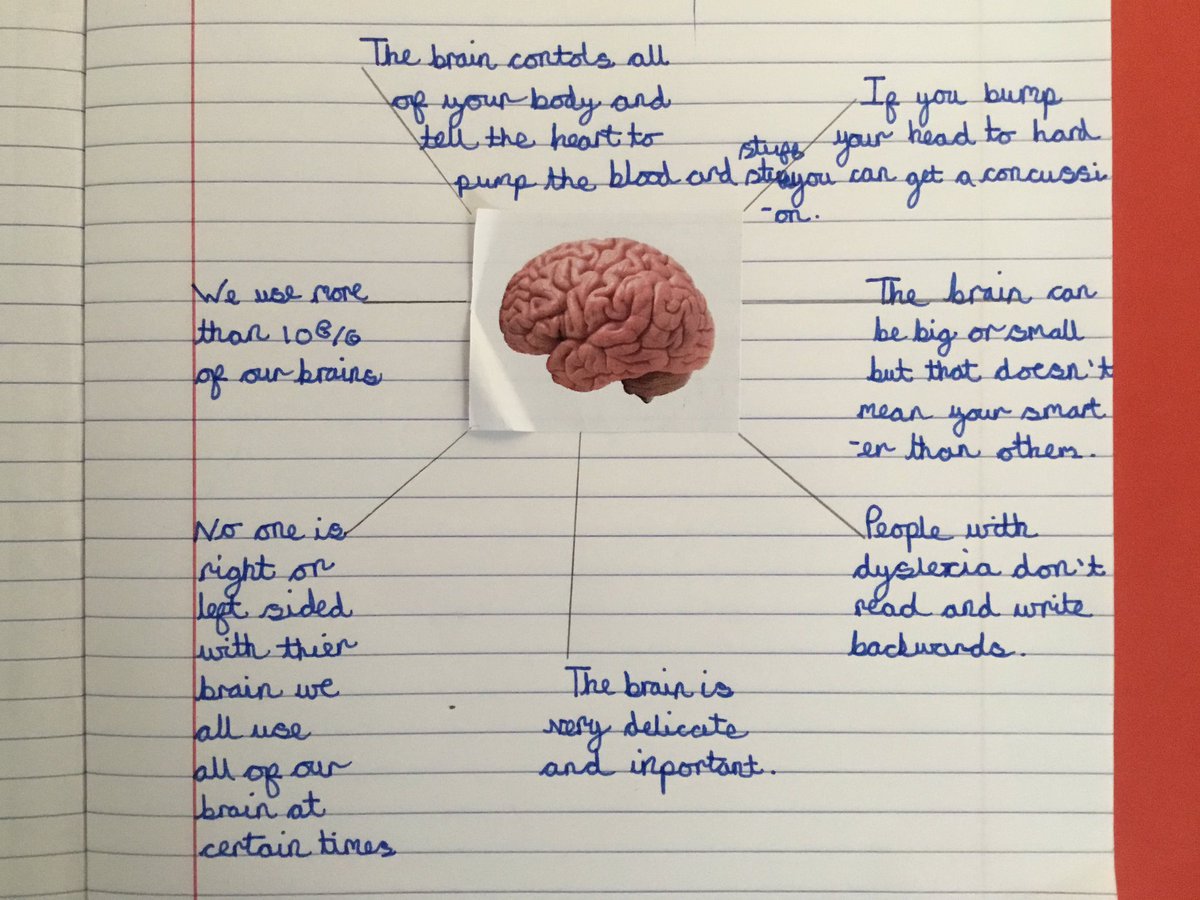 The brain contols all
of your body and
tell the heart to
pump the blood and stuff
If you bump
your head to hard
you can get a concussi
-on.
We use more
than 10%
of our brains
The brain can
be big or small
but that doesn't
mean your smart
-er than others.
No one is
right or
left sided
with thier
brain we
all use
all of our
brain at
certain times
The brain is
very delicate
and inportant.
People with
dyslexia don't
read and write
backwards.